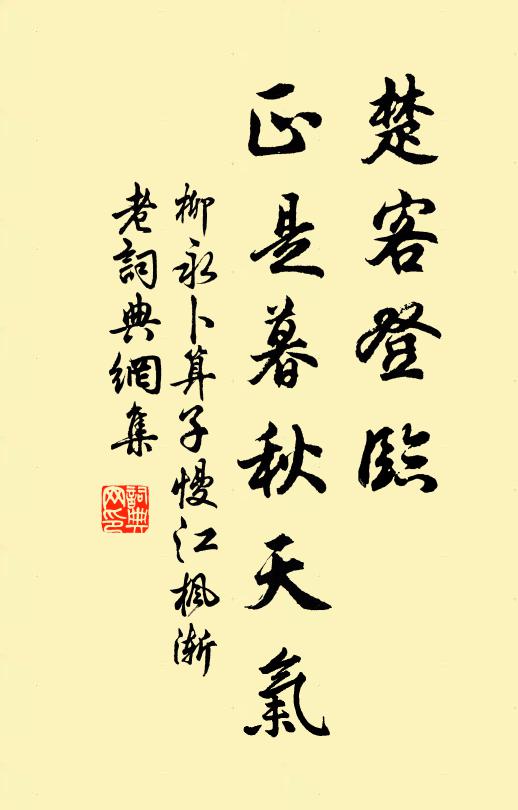 楚客登臨
正是暮秋天氣
柳永卜算子慢江楓漸
老詞典網集
詞典
网印